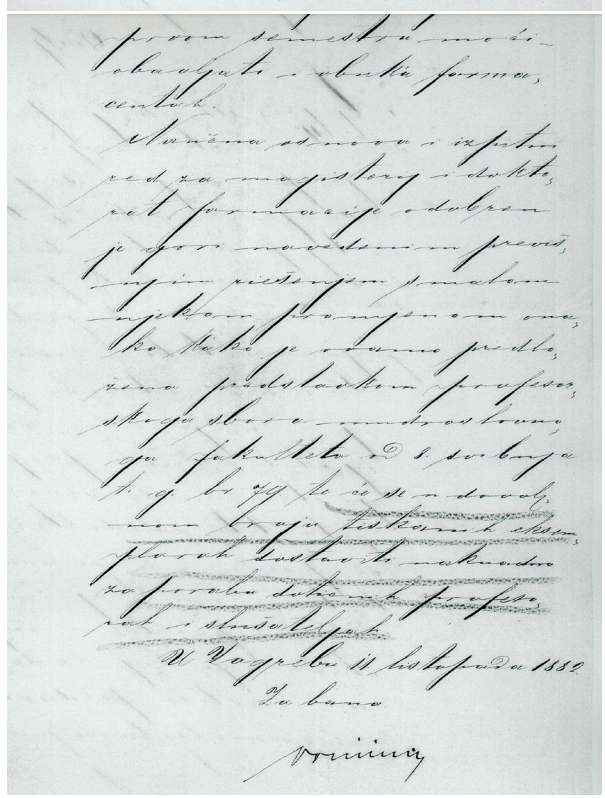 prvom semestru moći
obavljati i obuka farma,
ceutah.
Naučna osnova i izpitni
red za magisterij i dokto,
rat farmacije odobren
je gori navedenim previš,
njim riešenjem s malom
njekom promjenom ona,
ko kako je ovamo predlo,
žena predstavkom profesor,
skoga sbora mudroslovno,
ga fakulteta od 8. svibnja
t. g. br. 79 te će se u dovolj,
nom broju tiskanih eksem,
plarah dostaviti naknadno
za porabu dotičnih profeso,
rah i slušateljah.
U Zagrebu 11 listopada 1882.
Za bana